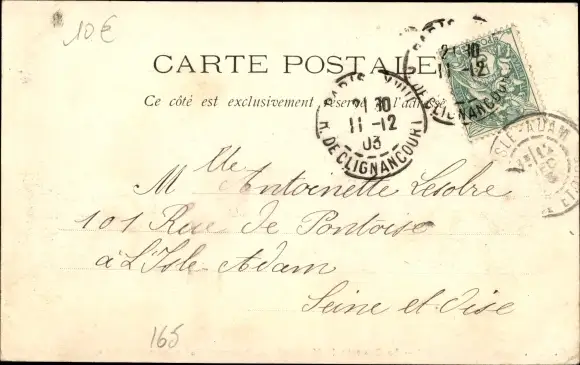 10€
CARTE POSTALE
Ce côté est exclusivement réservé à l'adresse
PARIS XVIII
21 30
11-12
03
R. DE CLIGNANCOURT
PARIS
21 30
11-12
R. DE CLIGNANCOURT
L'ISLE-ADAM
Mlle Antoinette Lesobre
101 Rue de Pontoise
à L'Isle Adam
Seine et Oise
165